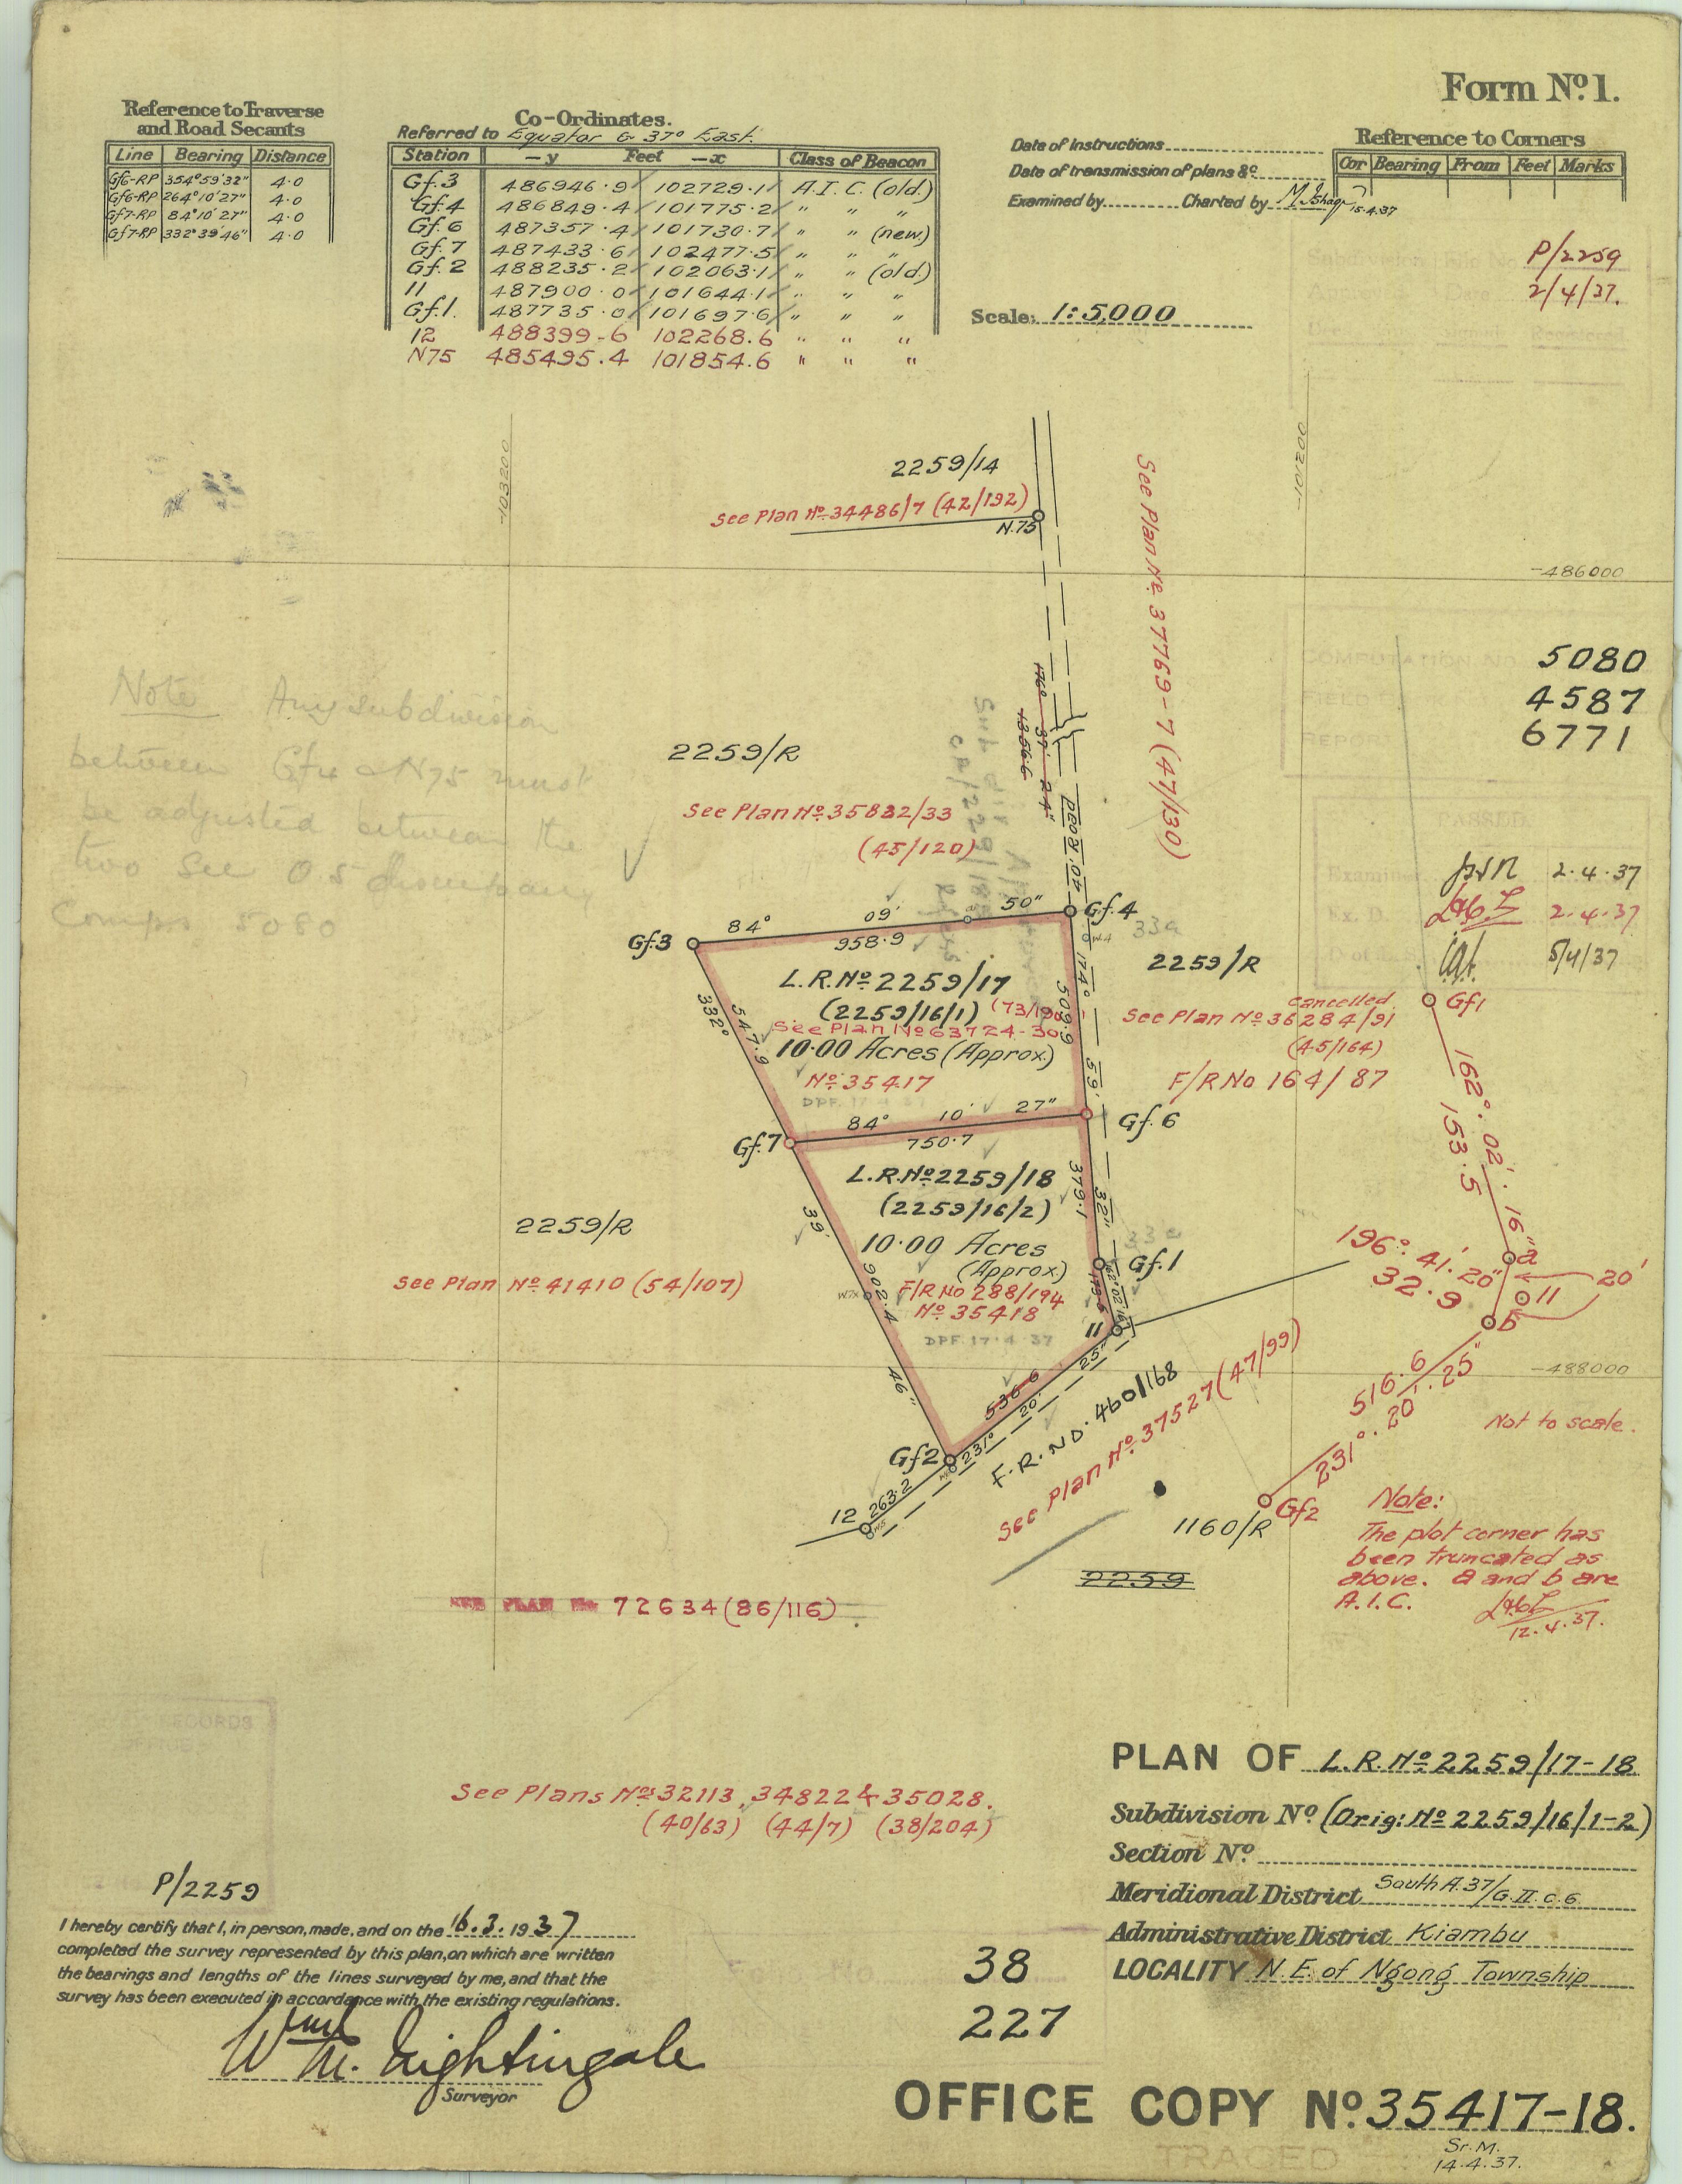 Form No. 1.
Reference to Traverse
and Road Secants
Line Bearing Distance
Gf6-RP 354°59'32" 4.0
Gf6-RP 264°10'27" 4.0
Gf7-RP 84°10'27" 4.0
Gf7-RP 332°39'46" 4.0
Co-Ordinates.
Referred to Equator & 37° East.
Station -y Feet -x Class of Beacon
Gf.3 486946.9 102729.1 A.I.C. (old)
Gf.4 486849.4 101775.2 " " "
Gf.6 487357.4 101730.7 " " (new)
Gf.7 487433.6 102477.5 " " "
Gf.2 488235.2 102063.1 " " (old)
11 487900.0 101644.1 " " "
Gf.1. 487735.0 101697.6 " " "
12 488399.6 102268.6 " " "
N75 485495.4 101854.6 " " "
Date of Instructions
Date of transmission of plans &c.
Examined by Charted by M. Ishaq 15.4.37
Reference to Corners
Cor Bearing From Feet Marks
P/2259
2/4/37.
Scale: 1:5,000
-103200
-102100
2259/14
See Plan No. 34486/7 (42/192)
N.75
See Plan No. 37769-7 (47/130)
-486000
COMPUTATION NO. 5080
FIELD 4587
REPORT 6771
Note Any subdivision
between Gf4 & N75 must
be adjusted between the
two See 0.5 discrepancy
Comps 5080
2259/R
176° 37' 24"
1256.6
40' Road
See Plan No. 35822/33
(45/120)
PASSED
Examiner 2.4.37
Ex. D. 2.4.37
5/4/37
84° 09' 50"
Gf.4
Gf.3
958.9
33a
W.4
L.R. No. 2259/17
(2259/16/1) (73/190
See Plan No 63724-30
10.00 Acres (Approx.)
No. 35417
DPF. 17.4.37
332°
547.9
174°
509.9
59'
2259/R
cancelled
See Plan No 36284/91
(45/164)
F/R No 164/87
Gf1
162°. 02'. 16"
153.5
84° 10' 27"
Gf.7
750.7
Gf.6
L.R. No. 2259/18
(2259/16/2)
10.00 Acres
(Approx.)
F/R No 288/194
No. 35418
DPF. 17.4.37
39'
902.4
46"
379.1
32"
33a
Gf.1
162° 02' 16"
11
2259/R
See Plan No. 41410 (54/107)
196°. 41'. 20"
32.9
a
20'
11
b
516.6
231°. 20'. 25"
-488000
Not to scale.
536.6
231° 20' 25"
Gf2
263.2
12
F.R. NO. 460/168
See Plan No. 37527 (47/99)
1160/R
2259
Gf2
Note:
The plot corner has
been truncated as
above. a and b are
A.I.C.
12.4.37.
SEE PLAN No. 72634 (86/116)
RECORDS
OFFICE
See Plans No. 32113, 34822 & 35028.
(40/63) (44/7) (38/204)
PLAN OF L.R. No. 2259/17-18
Subdivision No. (Orig: No. 2259/16/1-2)
Section No.
Meridional District South A.37/G.II.c.6.
Administrative District Kiambu
LOCALITY N.E. of Ngong Township
P/2259
I hereby certify that I, in person, made, and on the 16.3.1937
completed the survey represented by this plan, on which are written
the bearings and lengths of the lines surveyed by me, and that the
survey has been executed in accordance with the existing regulations.
Wm. Nightingale
Surveyor
38
227
OFFICE COPY No. 35417-18.
TRACED
Sr. M.
14.4.37.